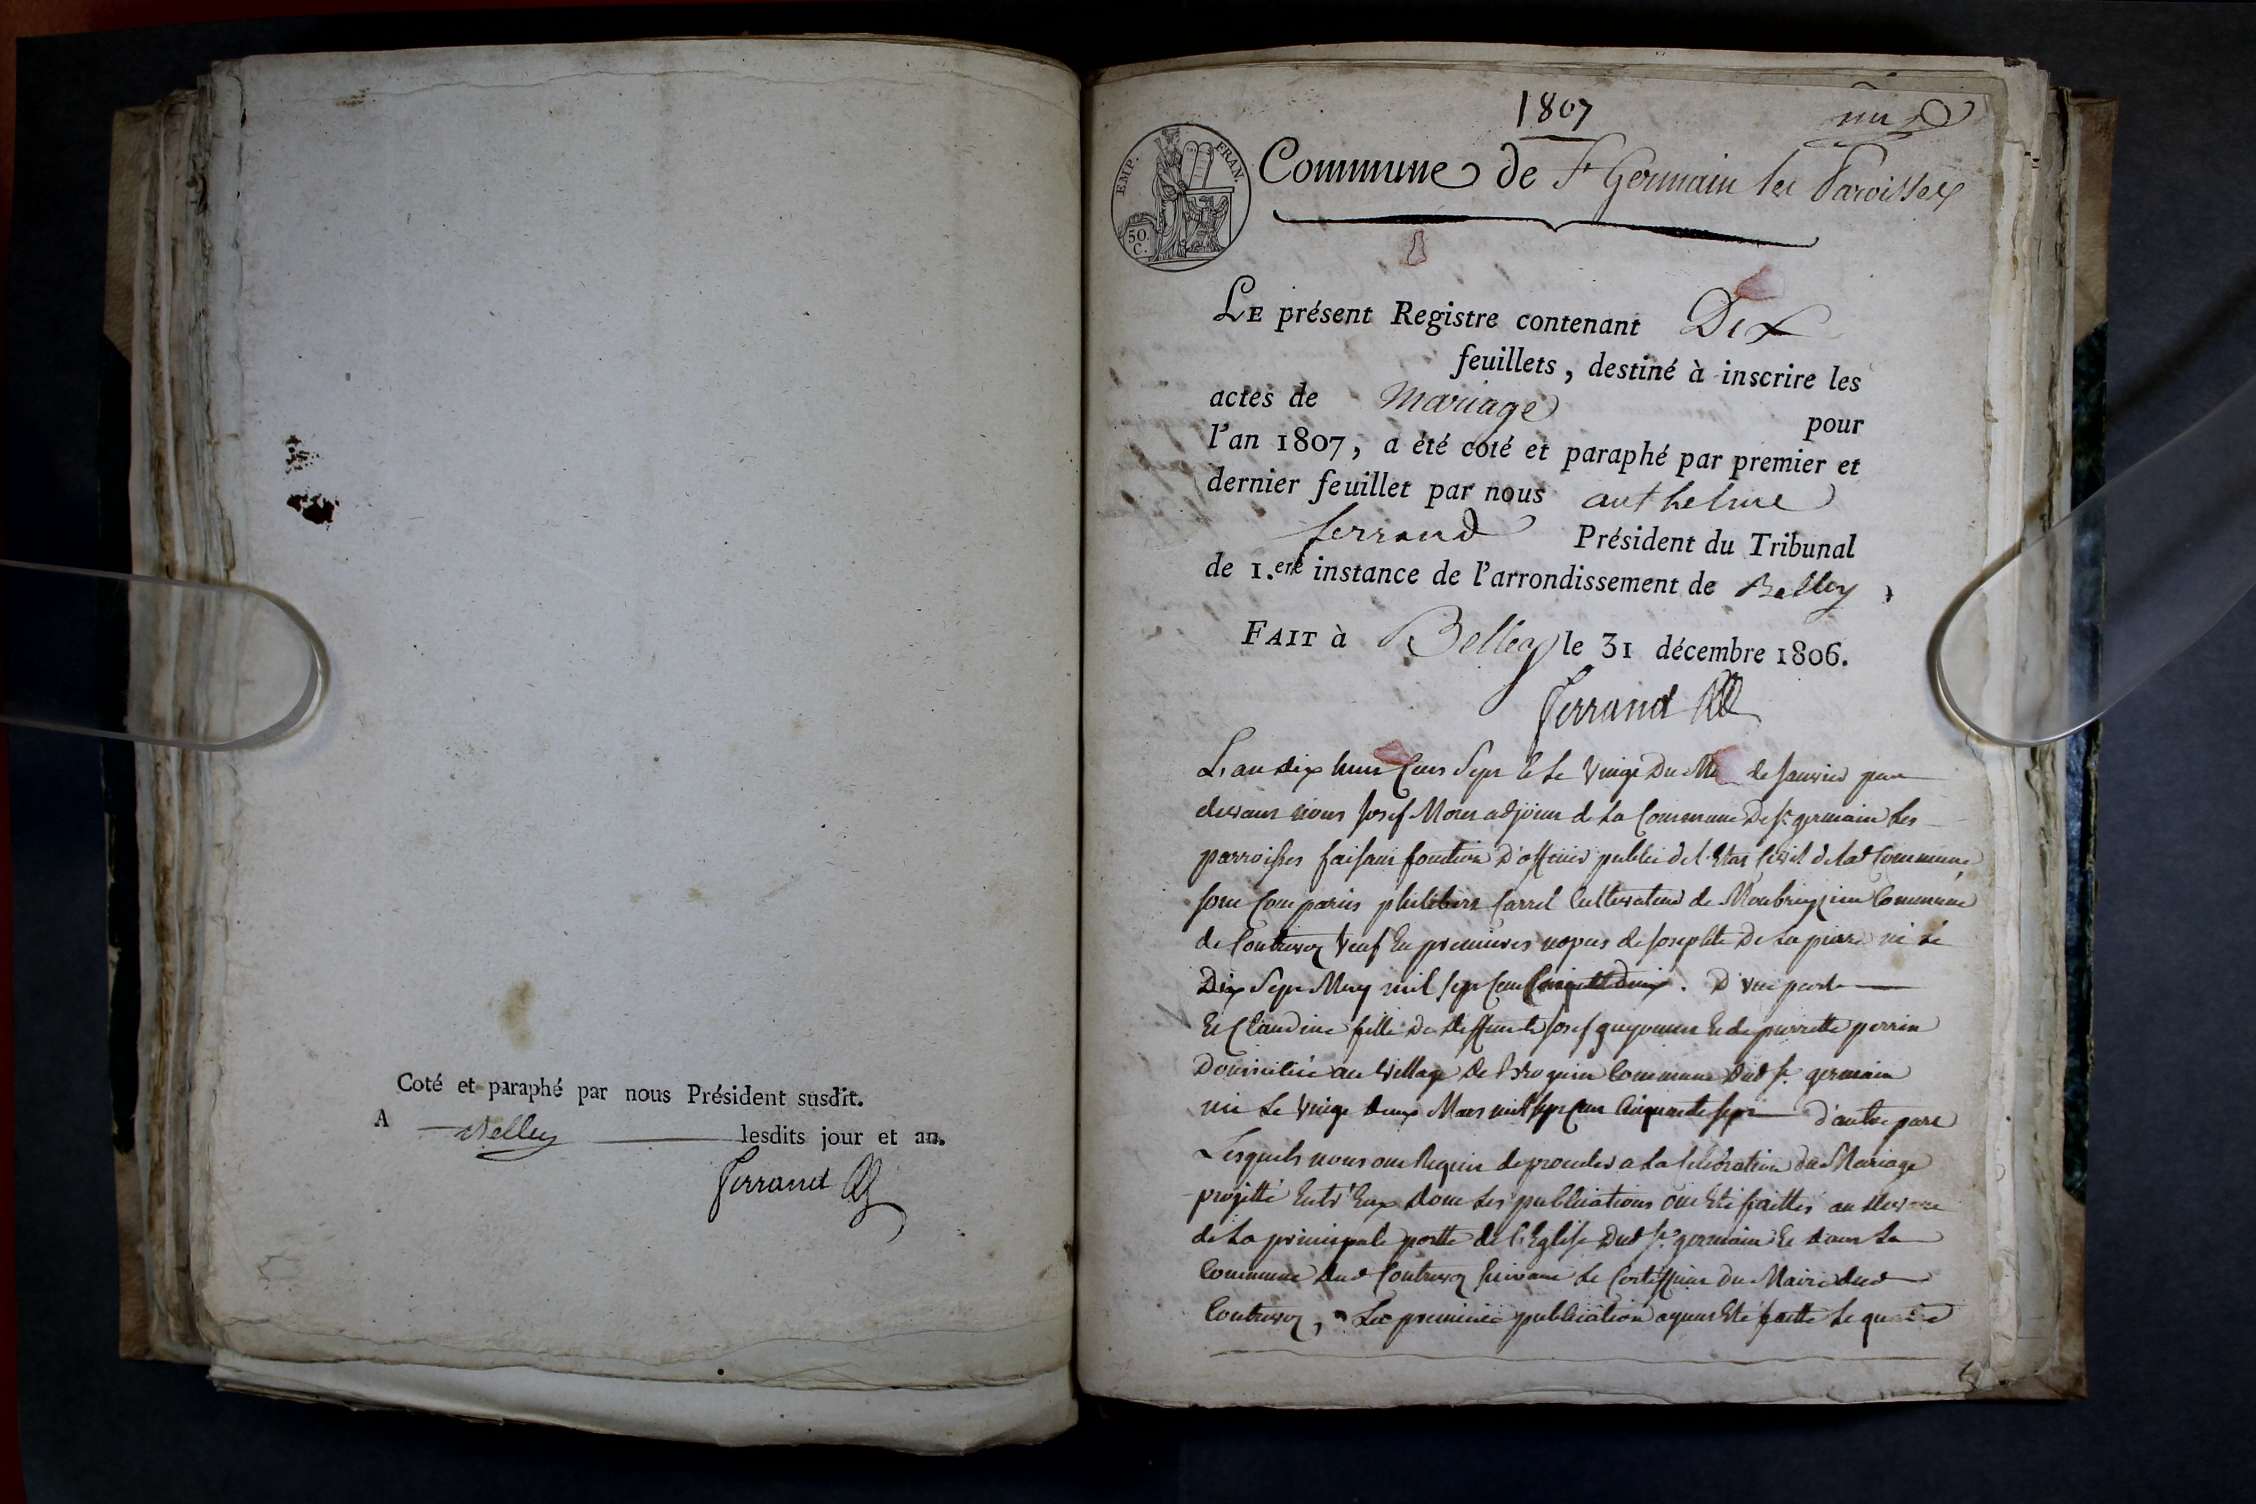 Coté et paraphé par nous Président susdit.
A Belley lesdits jour et an.
Ferrand
1807
un
EMP. FRAN.
50.
C.
Commune de St Germain les Paroisses
LE présent Registre contenant Dix
feuillets, destiné à inscrire les
actes de Mariage pour
l'an 1807, a été coté et paraphé par premier et
dernier feuillet par nous anthelme
ferrand Président du Tribunal
de 1.ere instance de l'arrondissement de Belley,
FAIT à Belley le 31 décembre 1806.
Ferrand
L'an dix huit Cens Sept & le Vingt Du Mois de Janvier par
devant nous Josef adjoint de La Commune De st germain Les
parroisses faisant fonction D'officier public de l'Etat Civil de lad Commune
sont Comparus philibert Carrel Cultivateur de Commune
de Contrevoz Veuf En premieres nopces de Josephte De La pierre né Le
Dix Sept May mil sept Cent Cinquante Deux. D'une part
Et Claudine fille De deffunt Josef guyonnet Et de pierrette perrin
Domiciliée au Village de Brognin Commune Dud st. germain
née Le Vingt deux Mars mil sept Cent Cinquante sept d'autre part
Lesquels nous ont Requis de proceder a La Celebration du Mariage
projetté Entr'Eux dont Les publications ont Eté faittes au devant
de La principale portte de l'Eglise Dud st. germain Et dans La
Commune dud Contrevoz suivant Le Certifficat du Maire dud
Contrevoz, La premiere publication ayant Eté faitte Le quatre